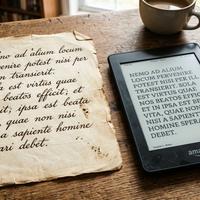 Nemo ad alium locum
venire potest nisi per
transierit.
est virtus quae
beatos efficit, et
it, ipsa est beata
quae non nisi
a sapiente homine
ari debet.
NEMO AD ALIUM
LOCUM PERVENIRE
POTEST NISI PER
TRANSIERIT. SOLA
EST VIRTUS QUAE
NOS BEATOS EFFICIT,
ET IN IPSA EST BEATA
VITA, QUAE NON NISI
A SAPIENTE HOMINE
SPERARI
DEBET.